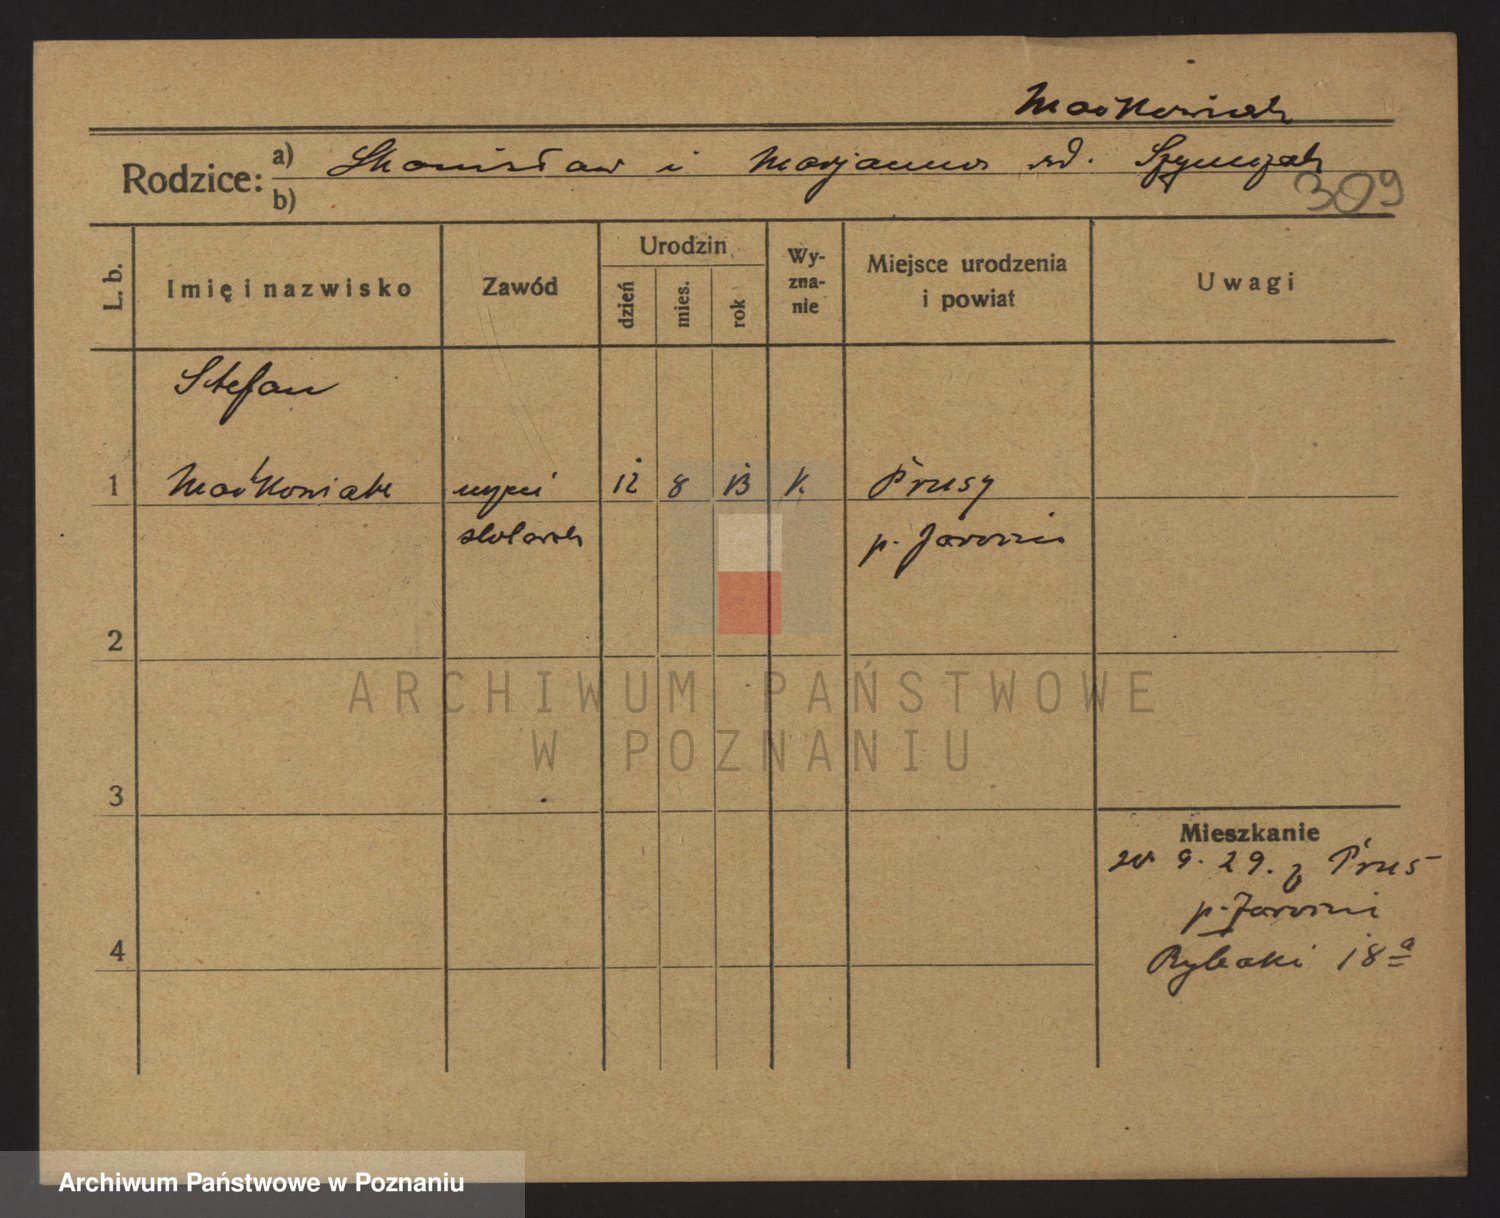 Maćkowiak
Rodzice: a) Stanisław i Marjanna rd. Szymczak
b)
309
L. b. Imię i nazwisko Zawód Urodzin dzień mies. rok Wy-
zna-
nie Miejsce urodzenia
i powiat Uwagi
Stefan
1 Maćkowiak uczeń 12 8 13 k. Prusy
stolarsk p. Jarocin
2
ARCHIWUM PAŃSTWOWE
W POZNANIU
3
Mieszkanie
9. 29. z Prus
p. Jarocin
4 Rybaki 18a
Archiwum Państwowe w Poznaniu